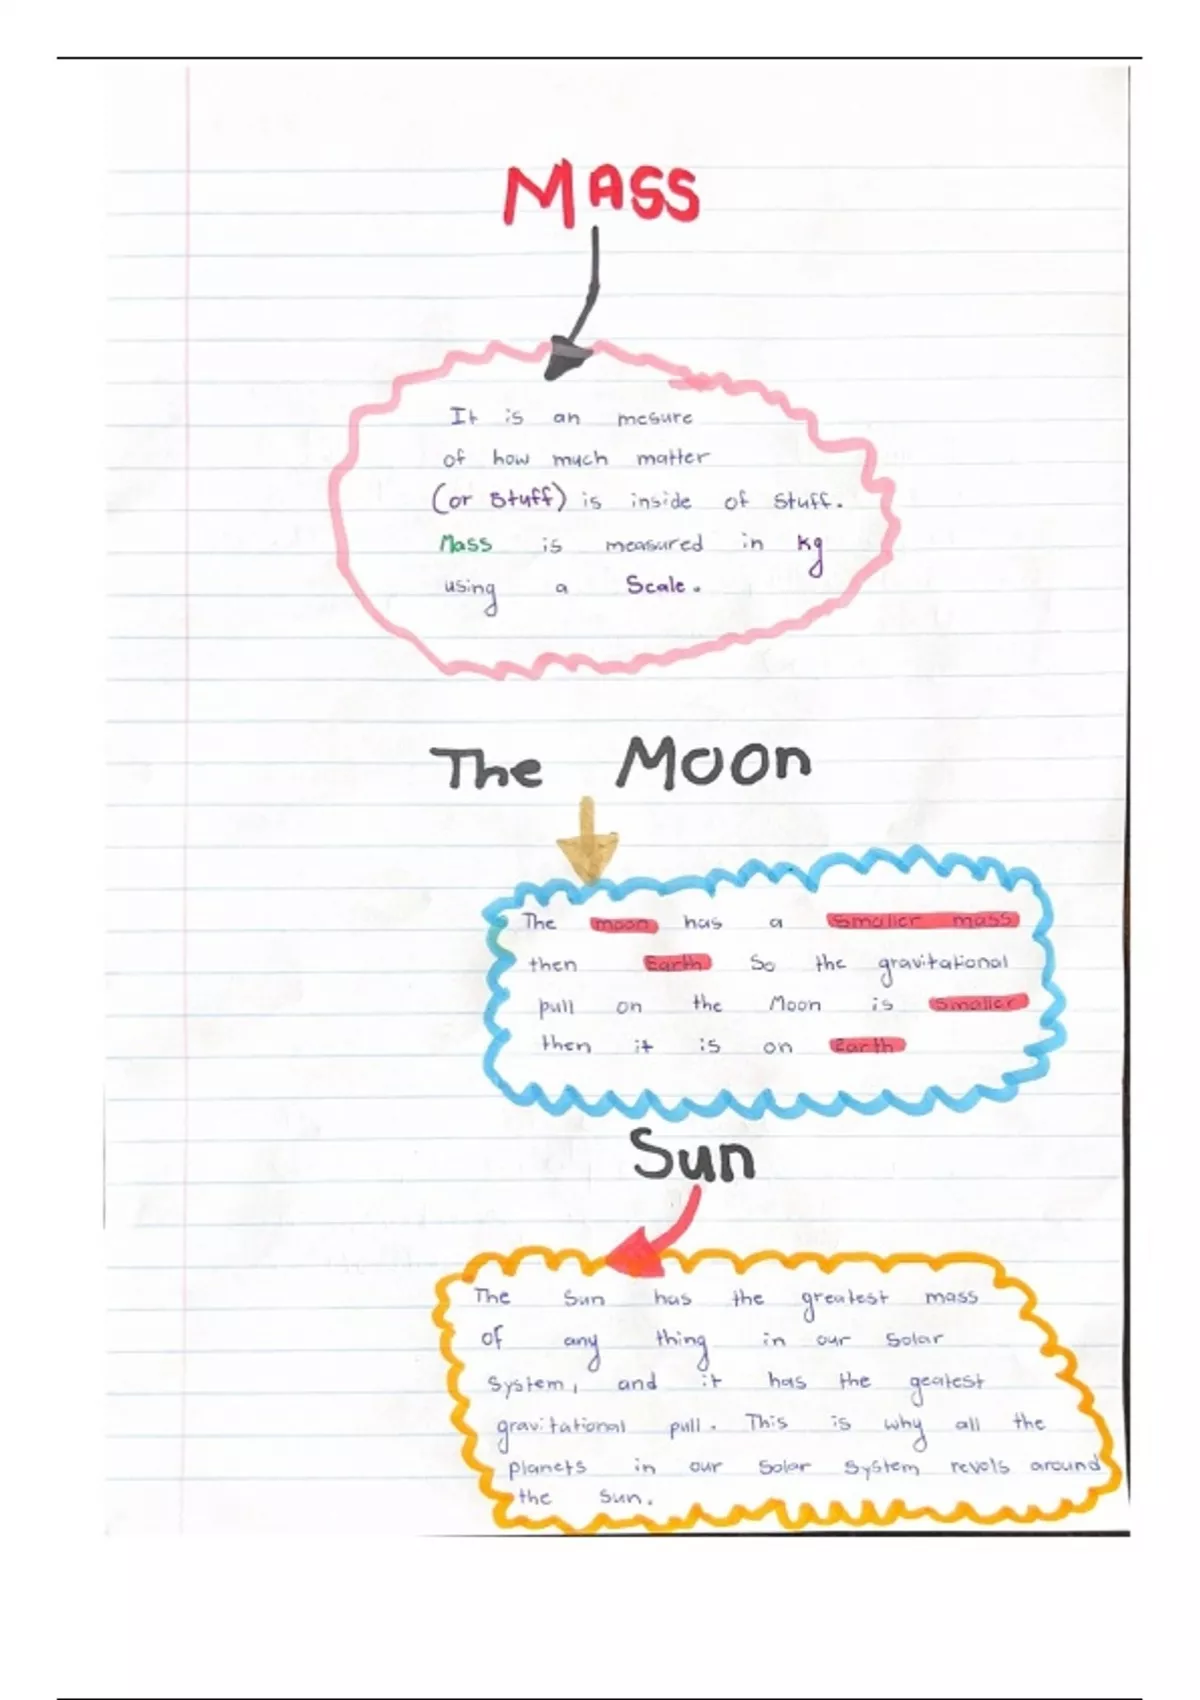 MASS
It is an mesure
of how much matter
(or stuff) is inside of stuff.
Mass is measured in kg
using a scale.
The Moon
The moon has a smaller mass
then Earth so the gravitational
pull on the Moon is smaller
then it is on Earth
Sun
The Sun has the greatest mass
of any thing in our solar
system, and it has the geatest
gravitational pull. This is why all the
planets in our solar system revols around
the sun.